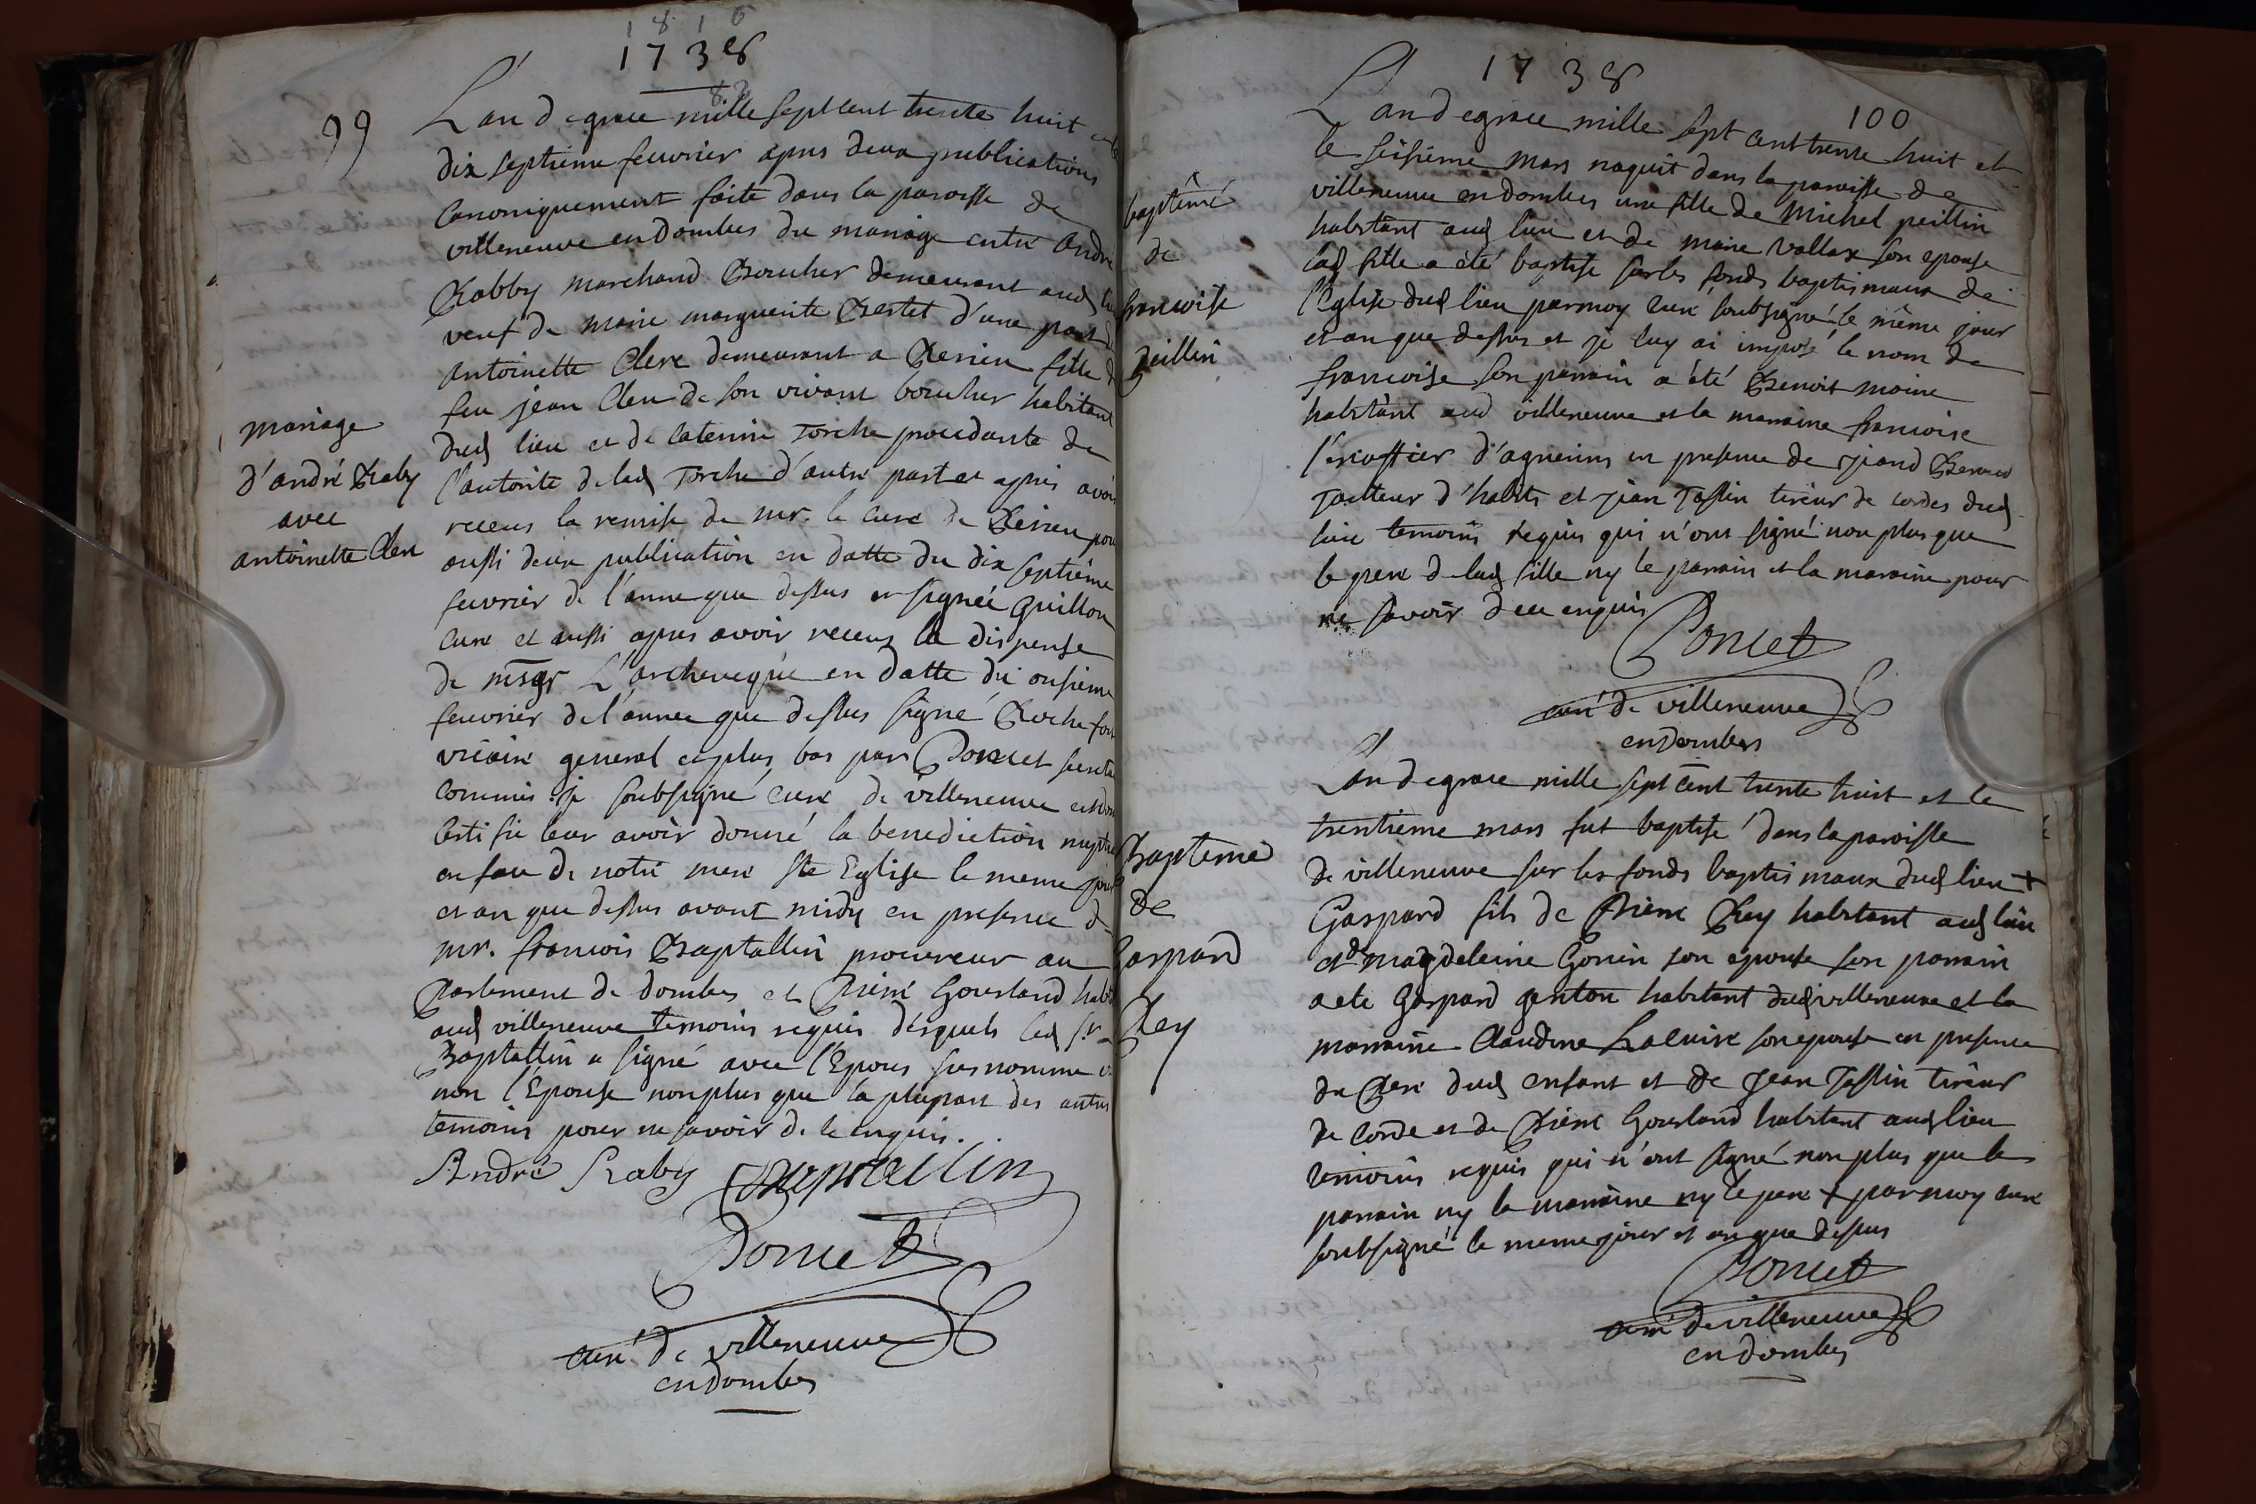 1816
1738
99
L'an de grace mille sept cent trente huit et le
dix septieme feuvrier apres deux publications
canoniquement faite dans la paroisse de
villeneuve en Dombes du mariage entre André
Rabby marchand Boucher demeurant aud lieu
veuf de marie marguerite Bertet d'une part
antoinette Clerc demeurant a fille de
feu jean Clerc de son vivant boucher habitant
dud lieu et de Caterine Torche procedante de
l'autorite de lad Torche d'autre part et apres avoir
receus la remise de mr. le cure de pour
aussi deux publication en datte du dix septième
feuvrier de l'anne que dessus et signée Guillon
cure et aussi apres avoir receus la dispense
de msgr L'archeveque en datte du onsieme
feuvrier de l'annee que dessus signé Rochefort
vicaire general et plus bas par Poncet
commis. je soubsigné curé de villeneuve en dom
certifie leur avoir donné la benediction nuptiale
en face de notre mere ste Eglise le meme jour
et an que dessus avant midy en presence de
mr. francois Baptallin procureur au
Parlement de dombes et Pierre Gourland habit
aud villeneuve temoins requis desquels led sr
Baptallin a signé avec l'Epoux susnomme et
non l'Epouse non plus que la pluspart des autres
temoins pour ne savoir de le enquis.
mariage
d'andré Raby
avec
antoinette Clerc
André Raby Baptallin
Poncet
curé de villeneuve
en dombes
1738
100
L'an de grace mille sept cent trente huit et
le seisieme mars naquit dans la paroisse de
villeneuve en dombes une fille de Michel peillin
habitant aud lieu et de marie Vollax son epouse
lad fille a été baptisé sur les fonds baptismaux de
l'Eglise dud lieu par moy curé soubsigné le même jour
et an que dessus et je luy ai imposé le nom de
francoise son parrain a été Benoit moine
habitant aud villeneuve et la marraine francoise
l'escoffier d'agnerins en presence de
Tailleur d'habits et jean Tassin tireur de cordes dud
lieu temoins requis qui n'ont signé non plus que
le pere de lad fille ny le parrain et la maraine pour
ne savoir deu enquis
baptême
de
francoise
peillin
Poncet
curé de villeneuve
en dombes
L'an de grace mille sept cent trente huit et le
trentieme mars fut baptisé dans la paroisse
de villeneuve sur les fonds baptismaux dud lieu +
Gaspard fils de Pierre Rey habitant aud lieu
et de magdeleine Gonin son epouse son parrain
a ete Gaspard genton habitant dud villeneuve et la
marraine Claudine Lacuire son epouse en presence
du Pere dud enfant et de Jean Tassin tireur
de corde et de Pierre Gourland habitant aud lieu
temoins requis qui n'ont signé non plus que le
parrain ny la marraine ny le pere + par moy curé
soubsigné le meme jour et an que dessus
Bapteme
de
Gaspard
Rey
Poncet
curé de villeneuve
en dombes